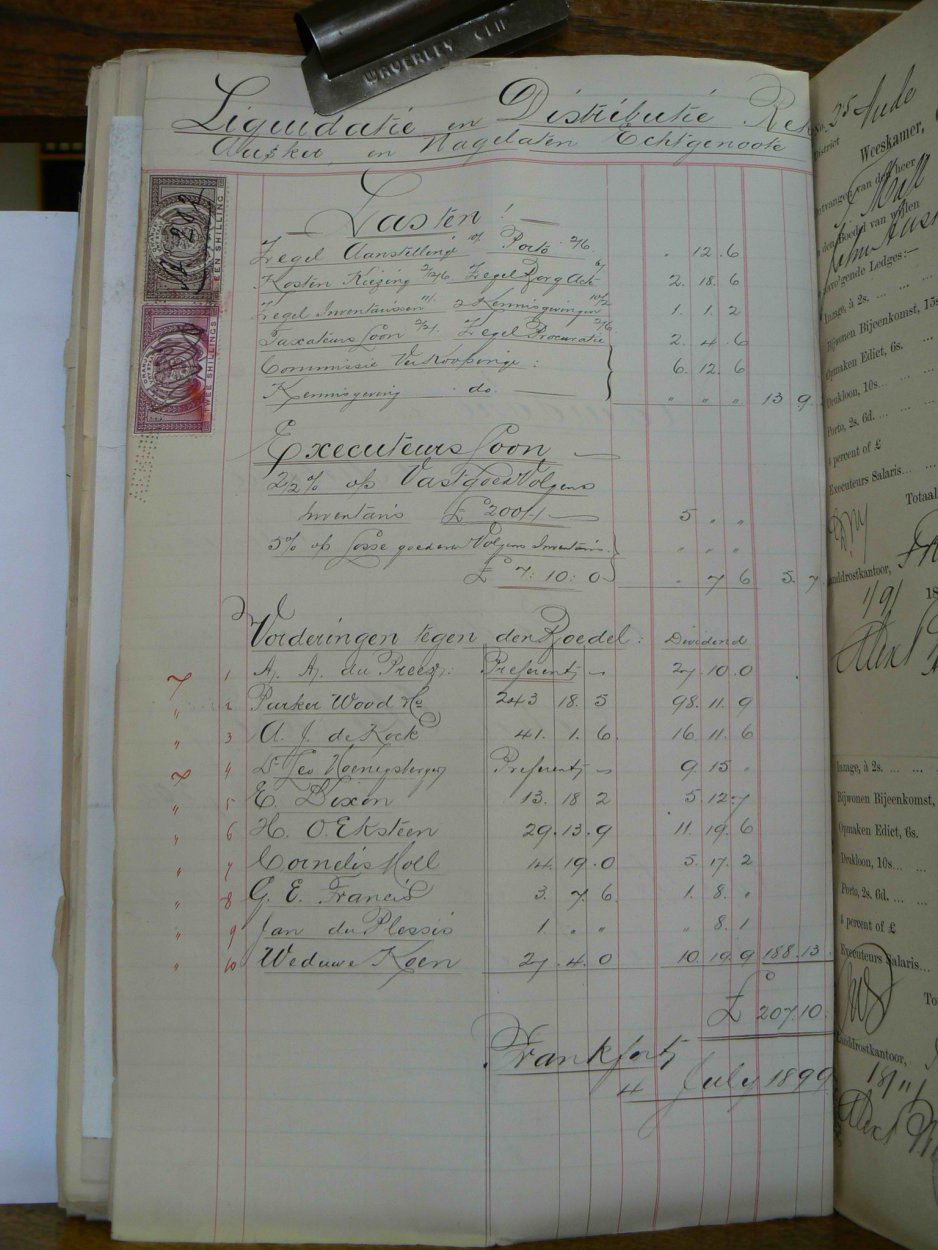 WAVERLEY CLIP
Liquidatie en Distributie Rek
en Nagelaten Echtgenoote
EEN SHILLING
TWEE SHILLINGS
Lasten!
Zegel Aanstelling 10/ Porto 2/6 " 12. 6
Kosten Kiezing Zegel Borg Acte 2. 18. 6
Zegel Inventarissen 11/ 2 Kennisgevingen 1. 1. 2
Taxateurs Loon Zegel Procuratie 2. 4. 6
Commissie Verkooping : 6. 12. 6
Kennisgeving do. " " " 13 9
Executeurs Loon
2½ % op Vastgoed Volgens
Inventaris £ 200/-/- 5 " "
5% op Losse goederen Volgens Inventaris " " "
£ 7: 10: 0 " 7 6 5. 7
Vorderingen tegen den Boedel: Dividend
1 A. A. du Preez: Preferent 27. 10. 0
" 2 Parker Wood & Co 243 18. 5 98. 11. 9
" 3 A. J. de Kock 41. 1. 6. 16. 11. 6
4 Dr Leo Hoenigsberger Preferent 9. 15 "
" 5 E. Dixon 13. 18 2 5 12. 7
" 6 H. O. Eksteen 29. 13. 9 11. 19. 6
" 7 Cornelis Moll 14. 19. 0 5. 17. 2
" 8 G. E. Francis 3. 7. 6. 1. 8. "
" 9 Jan du Plessis 1. " " " 8. 1
" 10 Weduwe Koen 27. 4. 0 10. 19. 9 188. 13.
£ 207. 10.
Frankfort
4 July 1899
No. 25
District
Weeskamer,
Ontvangen van den heer
Moll
in den Boedel van wijlen
volgende Ledges:—
Inzage, à 2s. ... ...
Bijwonen Bijeenkomst, 15s
Opmaken Edict, 6s.
Drukloon, 10s...
Porto, 2s. 6d. ...
4 percent of £
Executeurs Salaris...
Totaal
Landdrostkantoor,
1/9/ 18
Inzage, à 2s. ... ...
Bijwonen Bijeenkomst,
Opmaken Edict, 6s.
Drukloon, 10s...
Porto, 2s. 6d. ...
4 percent of £
Executeurs Salaris...
To
Landdrostkantoor,
18/11/